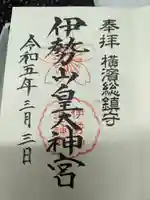 奉拝 横濱総鎮守
伊勢山皇大神宮
令和五年三月三日